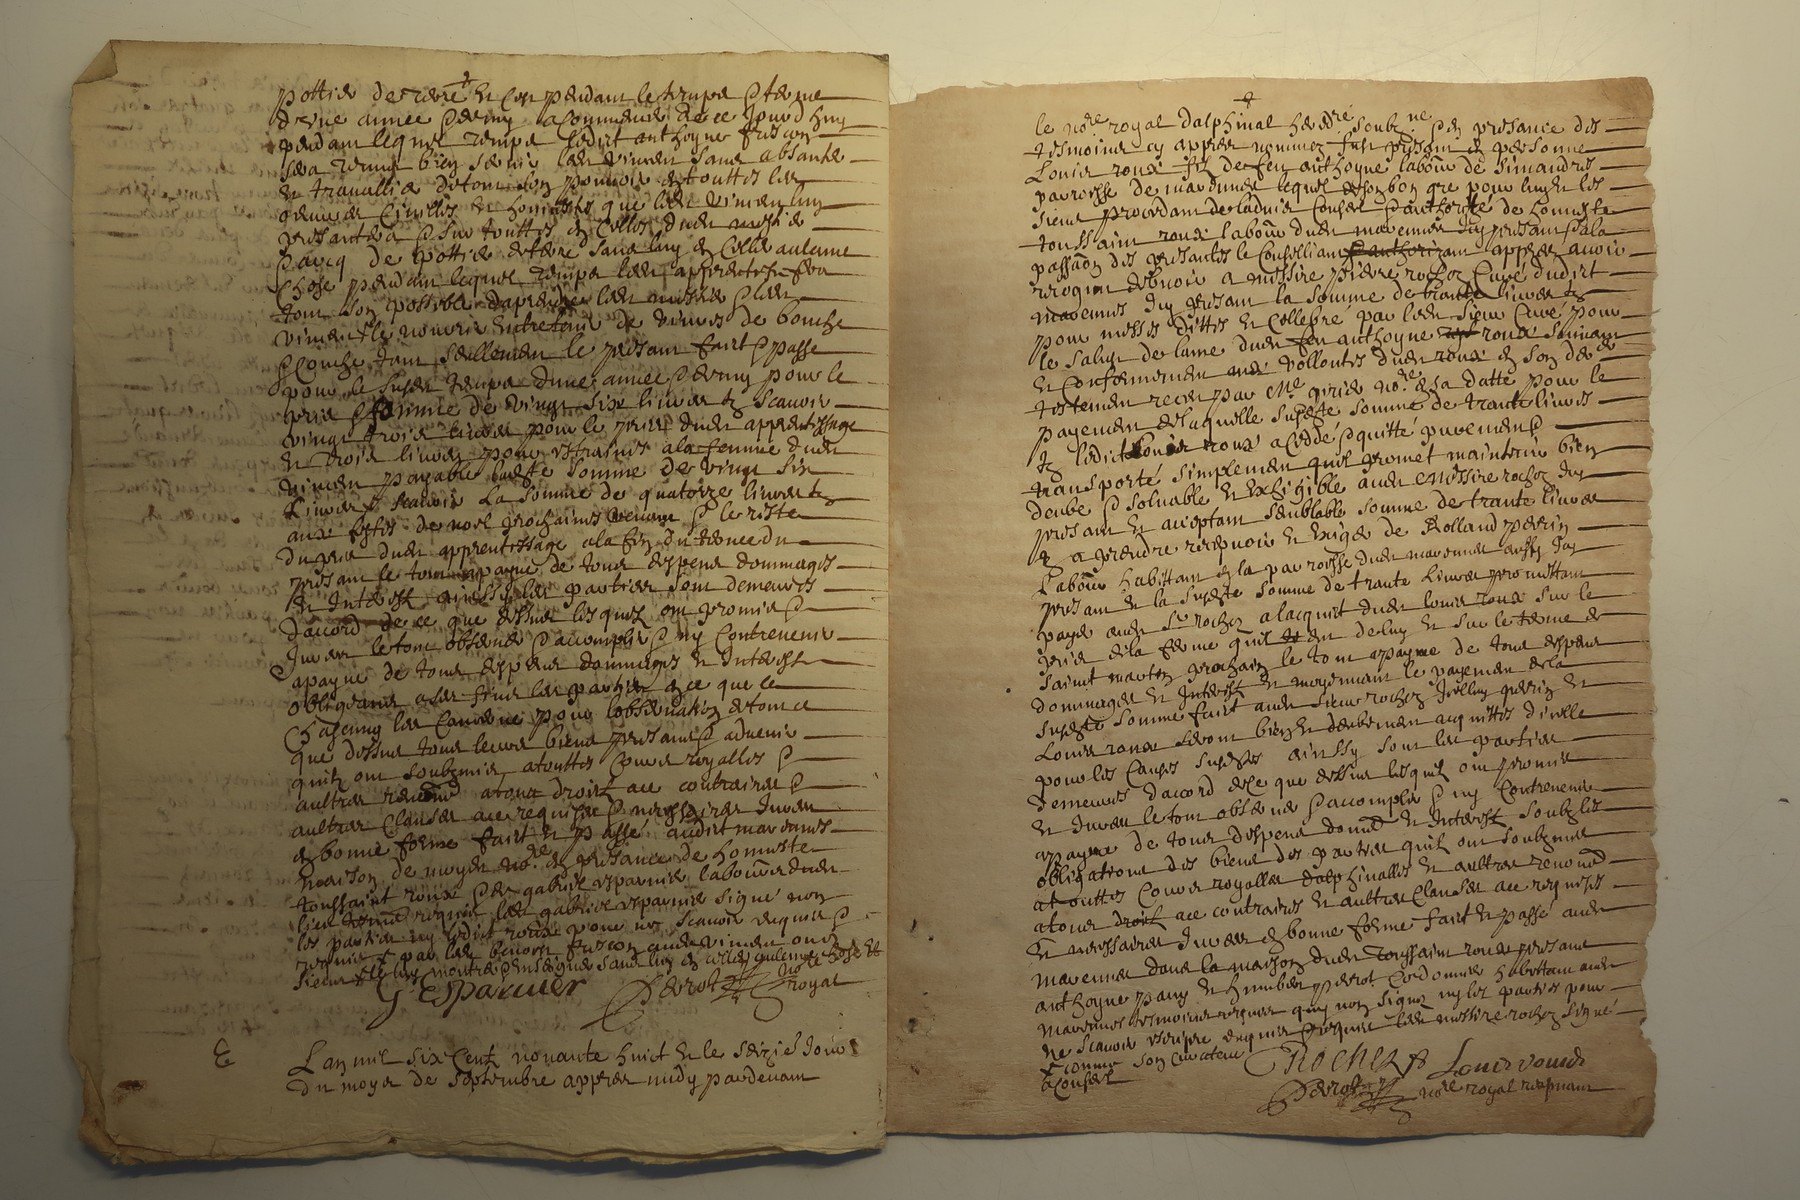 pottier de terre et ce pendant le temps & terme
d'une annee & demy a commencer de ce jourd'huy
pendant lequel temps ledict anthoyne
sera tenu bien servir led vincen sans absante
et travallier de tout son pouvoir en touttes les
oeuvres civilles et honnestes que led vincen luy
presantera & sur touttes en celles dud mestier
de pottier de terre sans luy en celler aulcune
chose pendant lequel temps led apprentif fera
tout son possible d'aprendre led mestier & led
vincen de le nourrir entretenir de vivres de bouche
& couche tant seullement le presant faict & passé
pour le susd temps d'une annee & demy pour le
prix & somme de vingt six livres tz scavoir
vingt trois livres pour le prix dud apprentissage
et trois livres pour estraines a la femme dud
vincen payable ladte somme de vingt six
livres scavoir la somme de quatorze livres tz
aux festes de noel prochaines venant & le reste
du prix dud apprentissage a la fin du terme du
presant le tout a payne de tous despens dommages
et interest ainssy les parties sont demeures
d'accord de ce que dessus lesquels ont promis &
juré le tout observer & accomplir & ny contrevenir
a payne de tous despens dommages et interest
obligeants a ces fins les parties en ce que le
chascung les concerne pour l'observation de tout ce
que dessus tous leurs biens presants & advenir
quilz ont soubzmis a touttes cours royalles &
aultres renond a tous droict a ce contraires &
aultres clauses a ce requises & necessaires juré
en bonne forme faict et passé audit marennes
maison de moyd nore en presance de honneste
toussaint roux & de gabriel esparnier labours dud
lieu tesmoins requis led gabriel esparnier signé non
les parties ny ledict roux pour ne scavoir requis &
G Esparnier
Perrot nore royal
L'an mil six cent nonante huict et le seizies jour
du moys de septembre appres midy pardevant
le nore royal dalphinal heredre soubzne & en presance des
tesmoins cy appres nommez fust presant en personne
Louis roux filz de feu anthoyne labour de simandres
parroisse de marennes lequel de son bon gre pour luy et les
siens procedant de l'advis conseil & authorité de honneste
toussaint roux labour dud marennes icy presant & a la
passaon des presantes le conselliant & authorizant appres avoir
recogneu debvoir a messire pierre rochez curé dudict
marennes icy presant la somme de trante livres tz
pour messes dittes et cellebré par led sieur curé pour
le salut de lame dud feu anthoyne roux suivant
et conformement vollontes dud roux en son der
testement receu par Me nore a sa datte pour le
payement de laquelle susdte somme de trante livres
tz ledict Louis roux a ceddé & quitté purement &
transporté simplement quil promet maintenir bien
deube & solvable et exhigible aud messire rochez icy
presant et acceptant semblable somme de trante livres
tz a prendre recepvoir et exiger de Rolland perrin
labour habittant en la parroisse dud marennes aussy icy
presant et la susdte somme de trante livres promettant
payer aud Sr rochez a lacquit dud louis roux sur le
prix de la ferme quil tient de luy et sur le terme de
saint martin prochain le tout a payne de tous despens
dommages et interest et moyennant le payement de la
susdte somme faict aud sieur rochez icelluy perrin et
Louis roux seront bien et deubement acquittes dicelle
pour les causes susdtes ainssy sont les parties
demeures daccord de ce que dessus lesquels ont promis
et juré le tout observer & accomplir & ny contrevenir
a payne de tous despens domed et interest soubz les
obligations des biens des parties quilz ont soubzmis
a touttes cours royalles dalphinalles et aultres renond
a tous droict a ce contraires et aultres clauses a ce requises
et necessaires juré en bonne forme faict et passé aud
marennes dans la maison dud toussaint roux presans
anthoyne pany et humbert perrot cordonnier habittant aud
marennes tesmoins requis quy nont signe ny les parties pour
ne scavoir escripre enquis & requis led messire rochez signé
comme son curateur
a conseil
Rochez Louis roux
Perrot nore royal recepvant